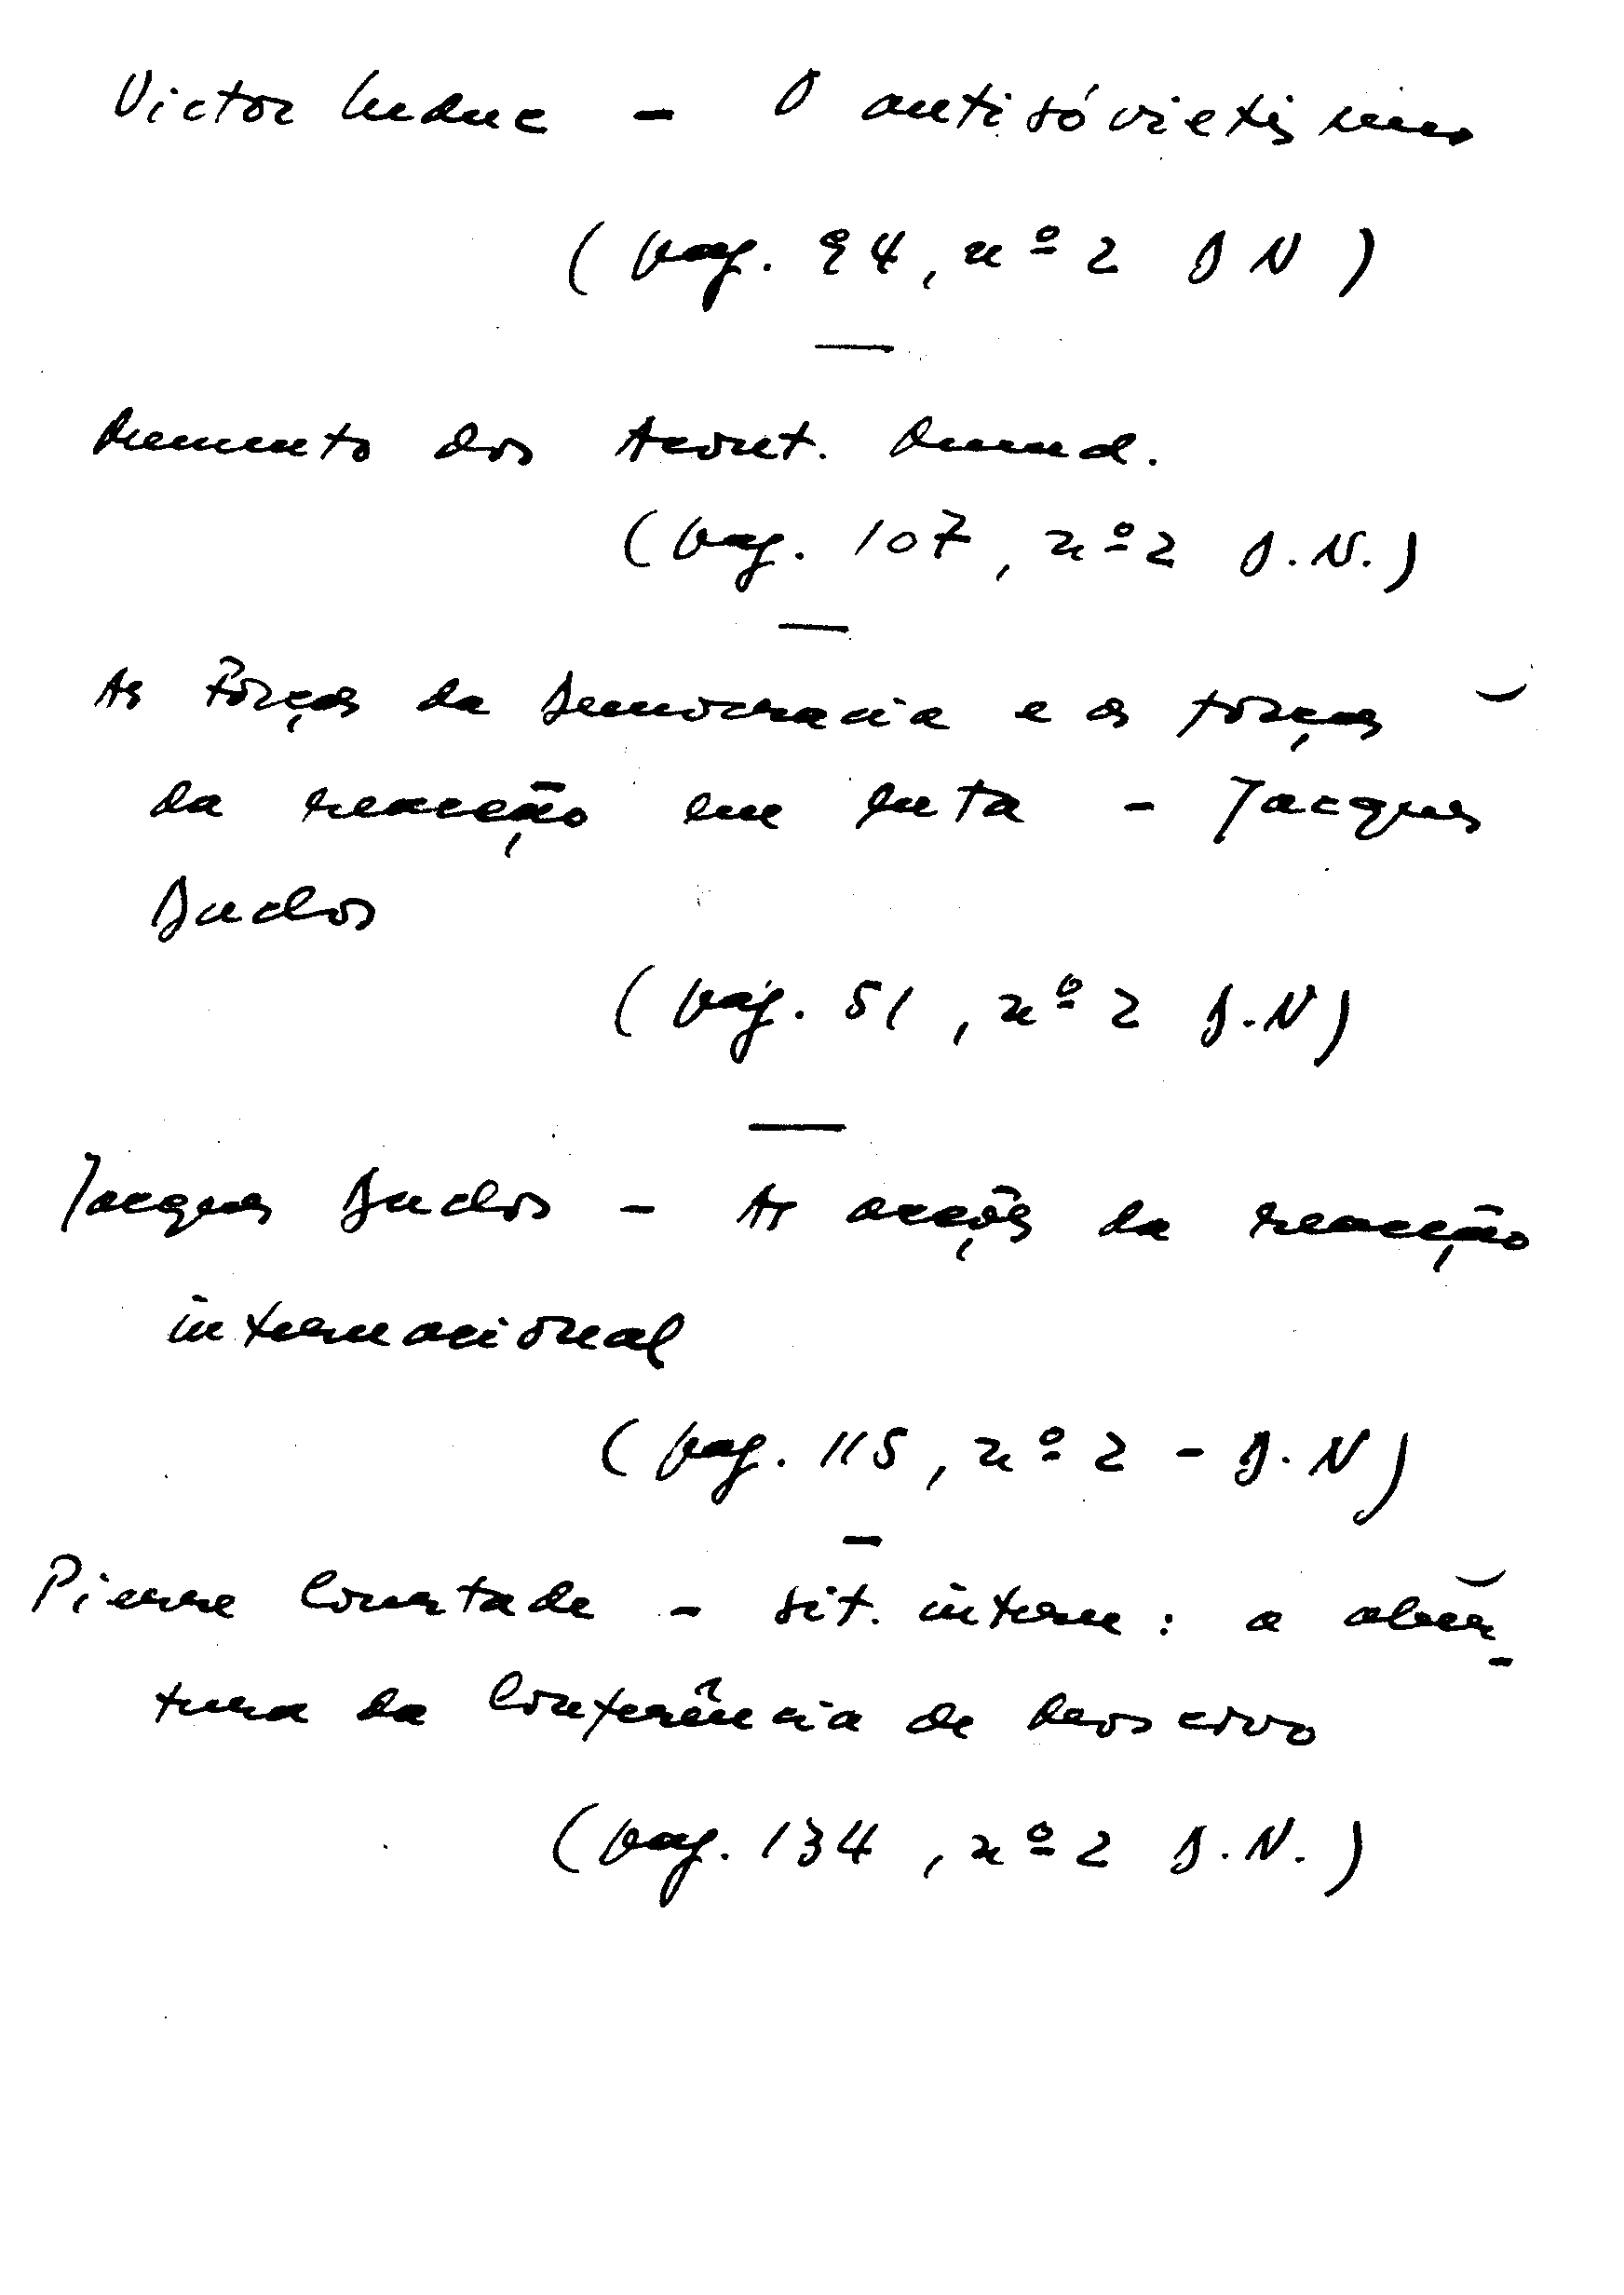 Victor Leduc - O antisóvietismo
(pag. 94, nº 2 D N)
dos Acont. Mund.
(pag. 107, nº 2 D.N.)
As Forças da Democracia e as forças
da reacção em luta - Jacques
Duclos
(pág. 51, nº 2 D.N)
Jacques Duclos - As acções da reacção
internacional
(pag. 115, nº 2 - D.N)
Pierre Courtade - Sit. intern: a aber-
tura da Conferência de Moscovo
(pag. 134, nº 2 D.N.)